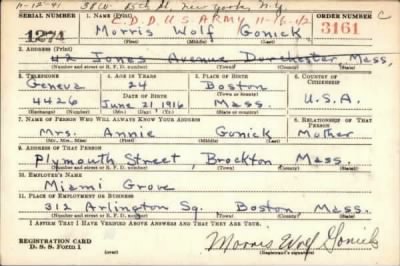 11-12-41 38 W. 85th St, New York, N.Y.
C.D.D. U.S. ARMY 11-16-42
SERIAL NUMBER 1. NAME (Print) ORDER NUMBER C
1274 Morris Wolf Gonick 3161
(First) (Middle) (Last)
2. ADDRESS (Print)
42 Jones Avenue Dorchester, Mass.
(Number and street or R. F. D. number) (Town) (County) (State)
3. TELEPHONE 4. AGE IN YEARS 5. PLACE OF BIRTH 6. COUNTRY OF CITIZENSHIP
Geneva 24 Boston
DATE OF BIRTH (Town or county)
4426 June 21, 1916 Mass. U.S.A.
(Exchange) (Number) (Mo.) (Day) (Yr.) (State or country)
7. NAME OF PERSON WHO WILL ALWAYS KNOW YOUR ADDRESS 8. RELATIONSHIP OF THAT PERSON
Mrs. Annie Gonick Mother
(Mr., Mrs., Miss) (First) (Middle) (Last)
9. ADDRESS OF THAT PERSON
Plymouth Street, Brockton Mass.
(Number and street or R. F. D. number) (Town) (County) (State)
10. EMPLOYER'S NAME
Miami Grove
11. PLACE OF EMPLOYMENT OR BUSINESS
312 Arlington Sq. Boston Mass.
(Number and street or R. F. D. number) (Town) (County) (State)
I AFFIRM THAT I HAVE VERIFIED ABOVE ANSWERS AND THAT THEY ARE TRUE.
REGISTRATION CARD
D. S. S. Form 1
Morris Wolf Gonick
(Registrant's signature)